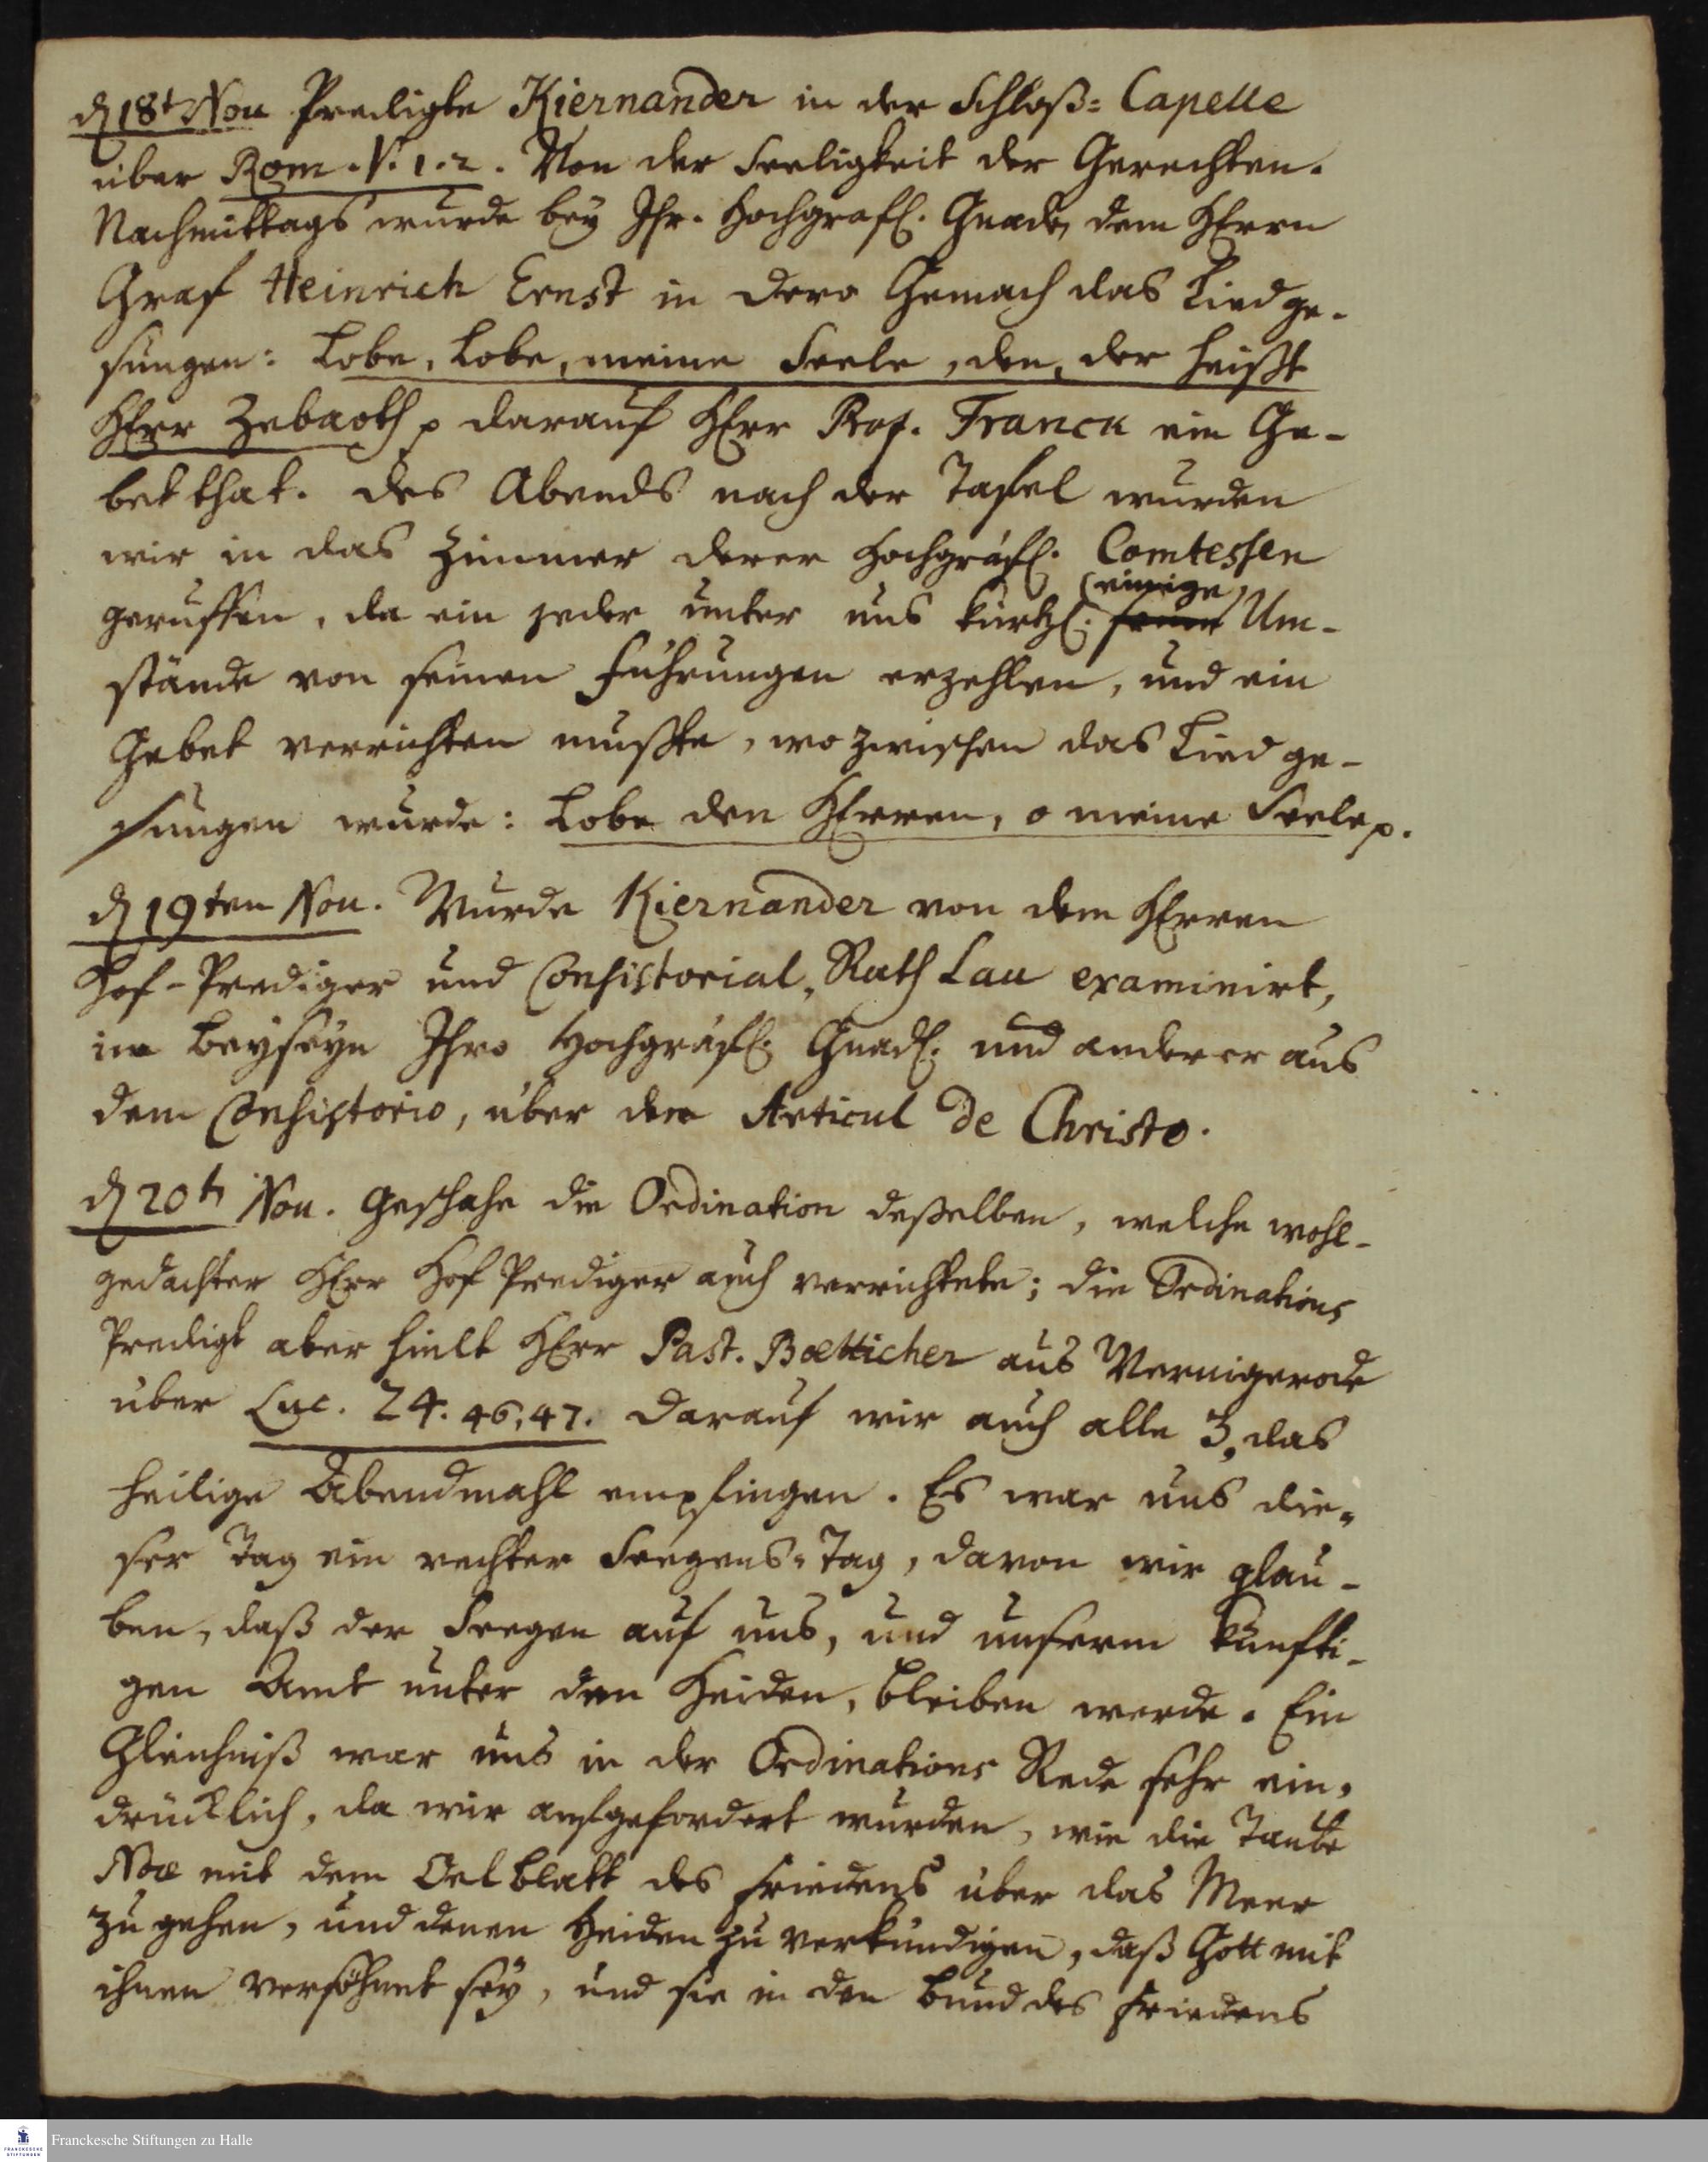 d 18t Nov Predigte Kiernander in der Schloß= Capelle
über Rom. V. 1. 2. Von der Seeligkeit der Gerechten.
Nachmittags wurde bey Ihr. Hochgräfl. Gnade, dem HErrn
Graf Heinrich Ernst in dero Gemach das Lied ge-
sungen: Lobe, Lobe, meine Seele, den, der heißt
HErr Zebaoth p darauf HErr Prof. Franck ein Ge-
bet that. des Abends nach der Tafel wurden
wir in das Zimmer derer Hochgräfl. Comtessen
(einige)
geruffen, da ein jeder unter uns kürtzl. Um-
stände von seinen Führungen erzehlen, und ein
Gebet verrichten mußte, wo zwischen das Lied ge-
sungen wurde: Lobe den HErren, o meine Seele p.
d 19ten Nov. Wurde Kiernander von dem HErren
Hof-Prediger und Consistorial-Rath Lau examinirt,
im Beyseyn Ihro Hochgräfl. Gnad. und anderer aus
dem Consistorio, über den Articul de Christo.
d 20t Nov. Geschahe die Ordination deßelben, welche wohl-
gedachter HErr Hof Prediger auch verrichtete; die Ordinations
Predigt aber hielt HErr Past. Bötticher aus Wernigerode
über Luc. 24. 46, 47. darauf wir auch alle 3, das
heilige Abendmahl empfingen. Es war uns die-
ser Tag ein rechter Seegens-Tag, davon wir glau-
ben, daß der Seegen auf uns, und unserm künfti-
gen Amt unter den Heiden, bleiben werde. Ein
Gleichniß war uns in der Ordinations Rede sehr ein-
drücklich, da wir aufgefordert wurden, wie die Taube
Noæ mit dem Oelblatt des Friedens über das Meer
zu gehen, und denen Heiden zu verkündigen, daß Gott mit
ihnen versöhnet sey, und sie in den Bund des Friedens
Franckesche Stiftungen zu Halle